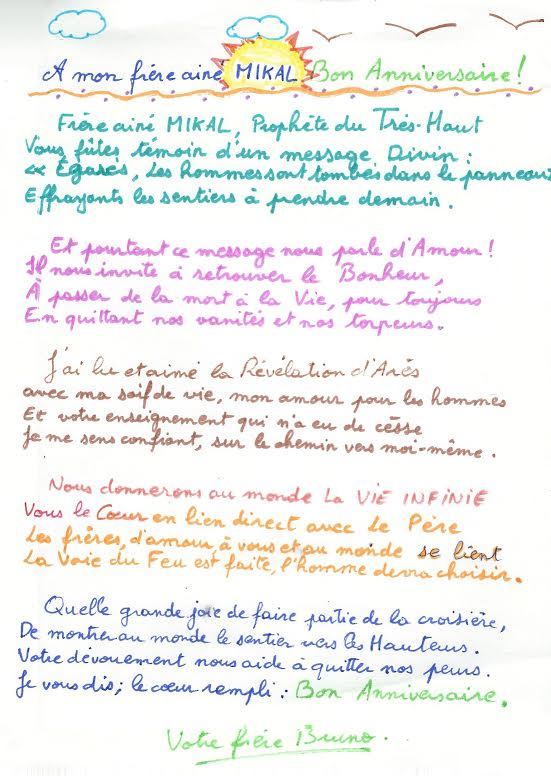 A mon frère ainé MIKAL Bon Anniversaire !
Frère ainé MIKAL, Prophète du Très-Haut
Vous fûtes témoin d'un message Divin :
« Égarés, les hommes sont tombés dans le panneau
Effrayants les sentiers à prendre demain.
Et pourtant ce message nous parle d'Amour !
Il nous invite à retrouver le Bonheur,
À passer de la mort à la Vie, pour toujours
En quittant nos vanités et nos torpeurs.
J'ai lu et aimé la Révélation d'Arès
avec ma soif de vie, mon amour pour les hommes
Et votre enseignement qui n'a eu de cèsse
Je me sens confiant, sur le chemin vers moi-même.
Nous donnerons au monde La VIE INFINIE
Vous le Cœur en lien direct avec le Père
Les frères, d'amour, à vous et au monde se lient
La Voie du Feu est faite, l'homme devra choisir.
Quelle grande joie de faire partie de la croisière,
De montrer au monde le sentier vers les Hauteurs.
Votre dévouement nous aide à quitter nos peurs.
Je vous dis; le cœur rempli : Bon Anniversaire.
Votre frère Bruno.